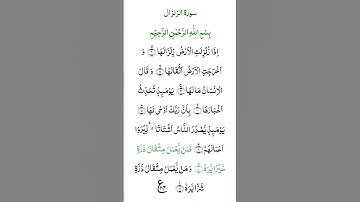 سورة الزلزال
بِسْمِ اللهِ الرَّحْمٰنِ الرَّحِيْمِ
اِذَا زُلْزِلَتِ الْاَرْضُ زِلْزَالَهَا ۝١ وَ
اَخْرَجَتِ الْاَرْضُ اَثْقَالَهَا ۝٢ وَ قَالَ
الْاِنْسَانُ مَا لَهَا ۝٣ يَوْمَىِٕذٍ تُحَدِّثُ
اَخْبَارَهَا ۝٤ بِاَنَّ رَبَّكَ اَوْحٰى لَهَا ۝٥
يَوْمَىِٕذٍ يَّصْدُرُ النَّاسُ اَشْتَاتًا ۙ۬ لِّيُرَوْا
اَعْمَالَهُمْ ۝٦ فَمَنْ يَّعْمَلْ مِثْقَالَ ذَرَّةٍ
خَيْرًا يَّرَهٗ ۝٧ وَ مَنْ يَّعْمَلْ مِثْقَالَ ذَرَّةٍ
شَرًّا يَّرَهٗ ۝٨ ع